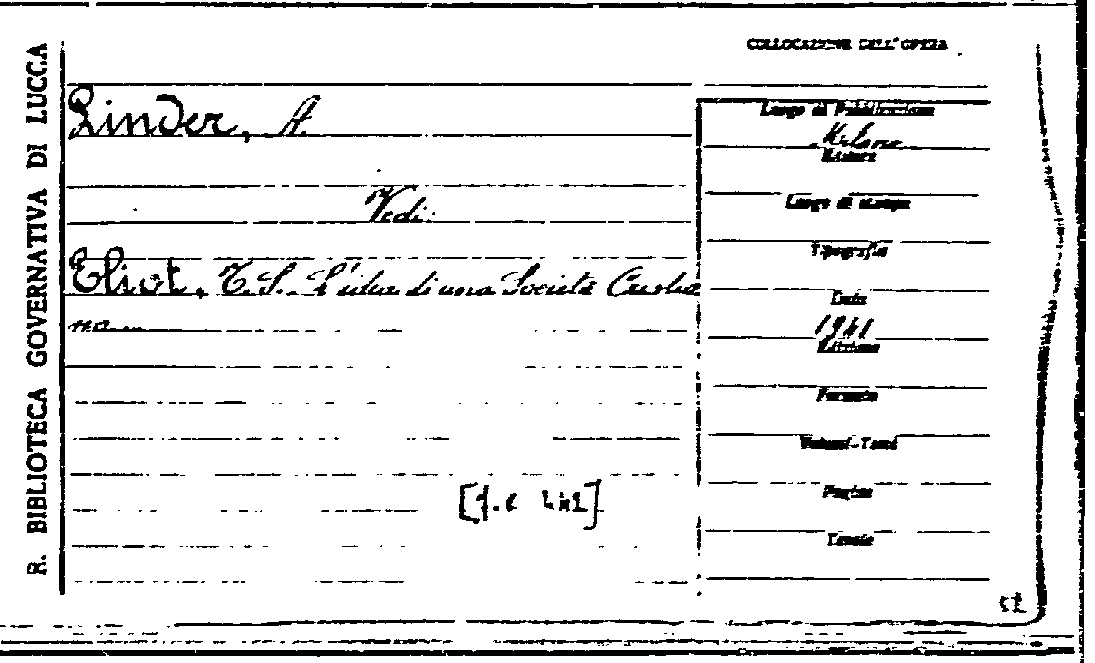 R. BIBLIOTECA GOVERNATIVA DI LUCCA
COLLOCAZIONE DELL'OPERA
Linder, A.
Vedi:
Eliot, T. S. L'idea di una Società Cristia
na
Luogo di Pubblicazione
Milano
Editore
Luogo di stampa
Tipografia
Data
1941
Edizione
Formato
Volumi-Tomi
Pagine
Tavole